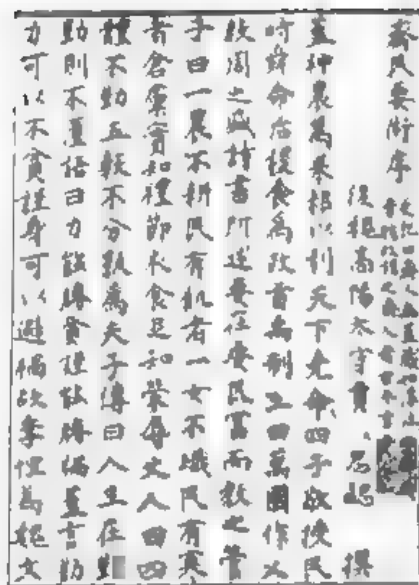 齊民要術序
後魏高陽太守賈思勰撰
蓋神農為耒耜以利天下堯命四子敬授民
時舜命后稷食為政首禹制土田萬國作乂
殷周之盛詩書所述要在安民富而教之管
子曰一農不耕民有飢者一女不織民有寒
者倉廩實知禮節衣食足知榮辱丈人曰四
體不勤五穀不分孰為夫子傳曰人生在勤
勤則不匱語曰力能勝貧謹能勝禍蓋言勤
力可以不貧謹身可以避禍故李悝為魏文